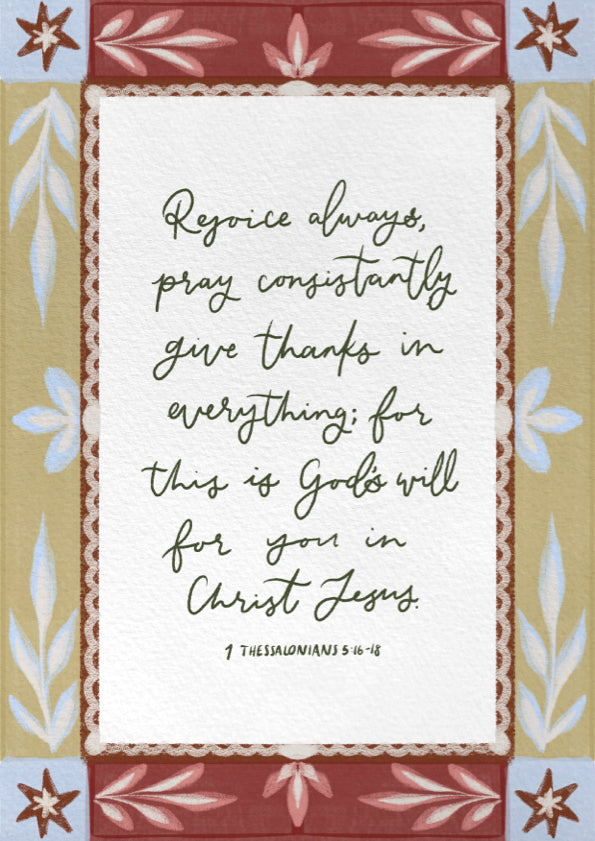 Rejoice always,
pray consistantly
give thanks in
everything; for
this is God's will
for you in
Christ Jesus.
1 THESSALONIANS 5:16-18